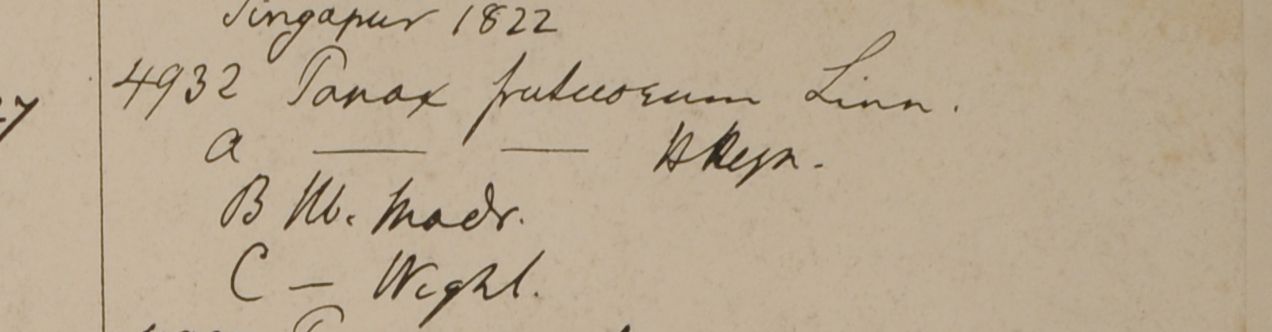 Singapur 1822
4932 Panax fruticosum Linn.
27
a — — H Heyn.
B Hb. Madr.
C — Wight.